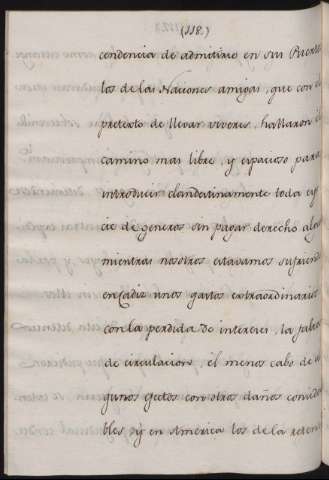 (118.)
cendencia de admitirse en sus Puer
tos de las Naciones amigas, que con el
pretexto de llevar viveres, hallaron el
camino mas libre, y espacioso para
introducir clandestinamente toda espe
cie de generos sin pagar derecho alg.
mientras nosotros estavamos sufriendo
en Cadiz unos gastos extraordinarios
con la perdida de intereses, la falta
de circulacion, él menos cabo de al
gunos efectos con otros daños conside
bles, y en America los de la reten